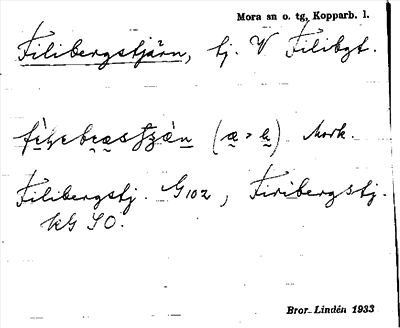 Mora sn o. tg, Kopparb. l.
Filibergstjärn, tj. V Filibgt.
(æ > ) Mork.
Filibergstj. G102, Firibergstj.
KG SO.
Bror Lindén 1933